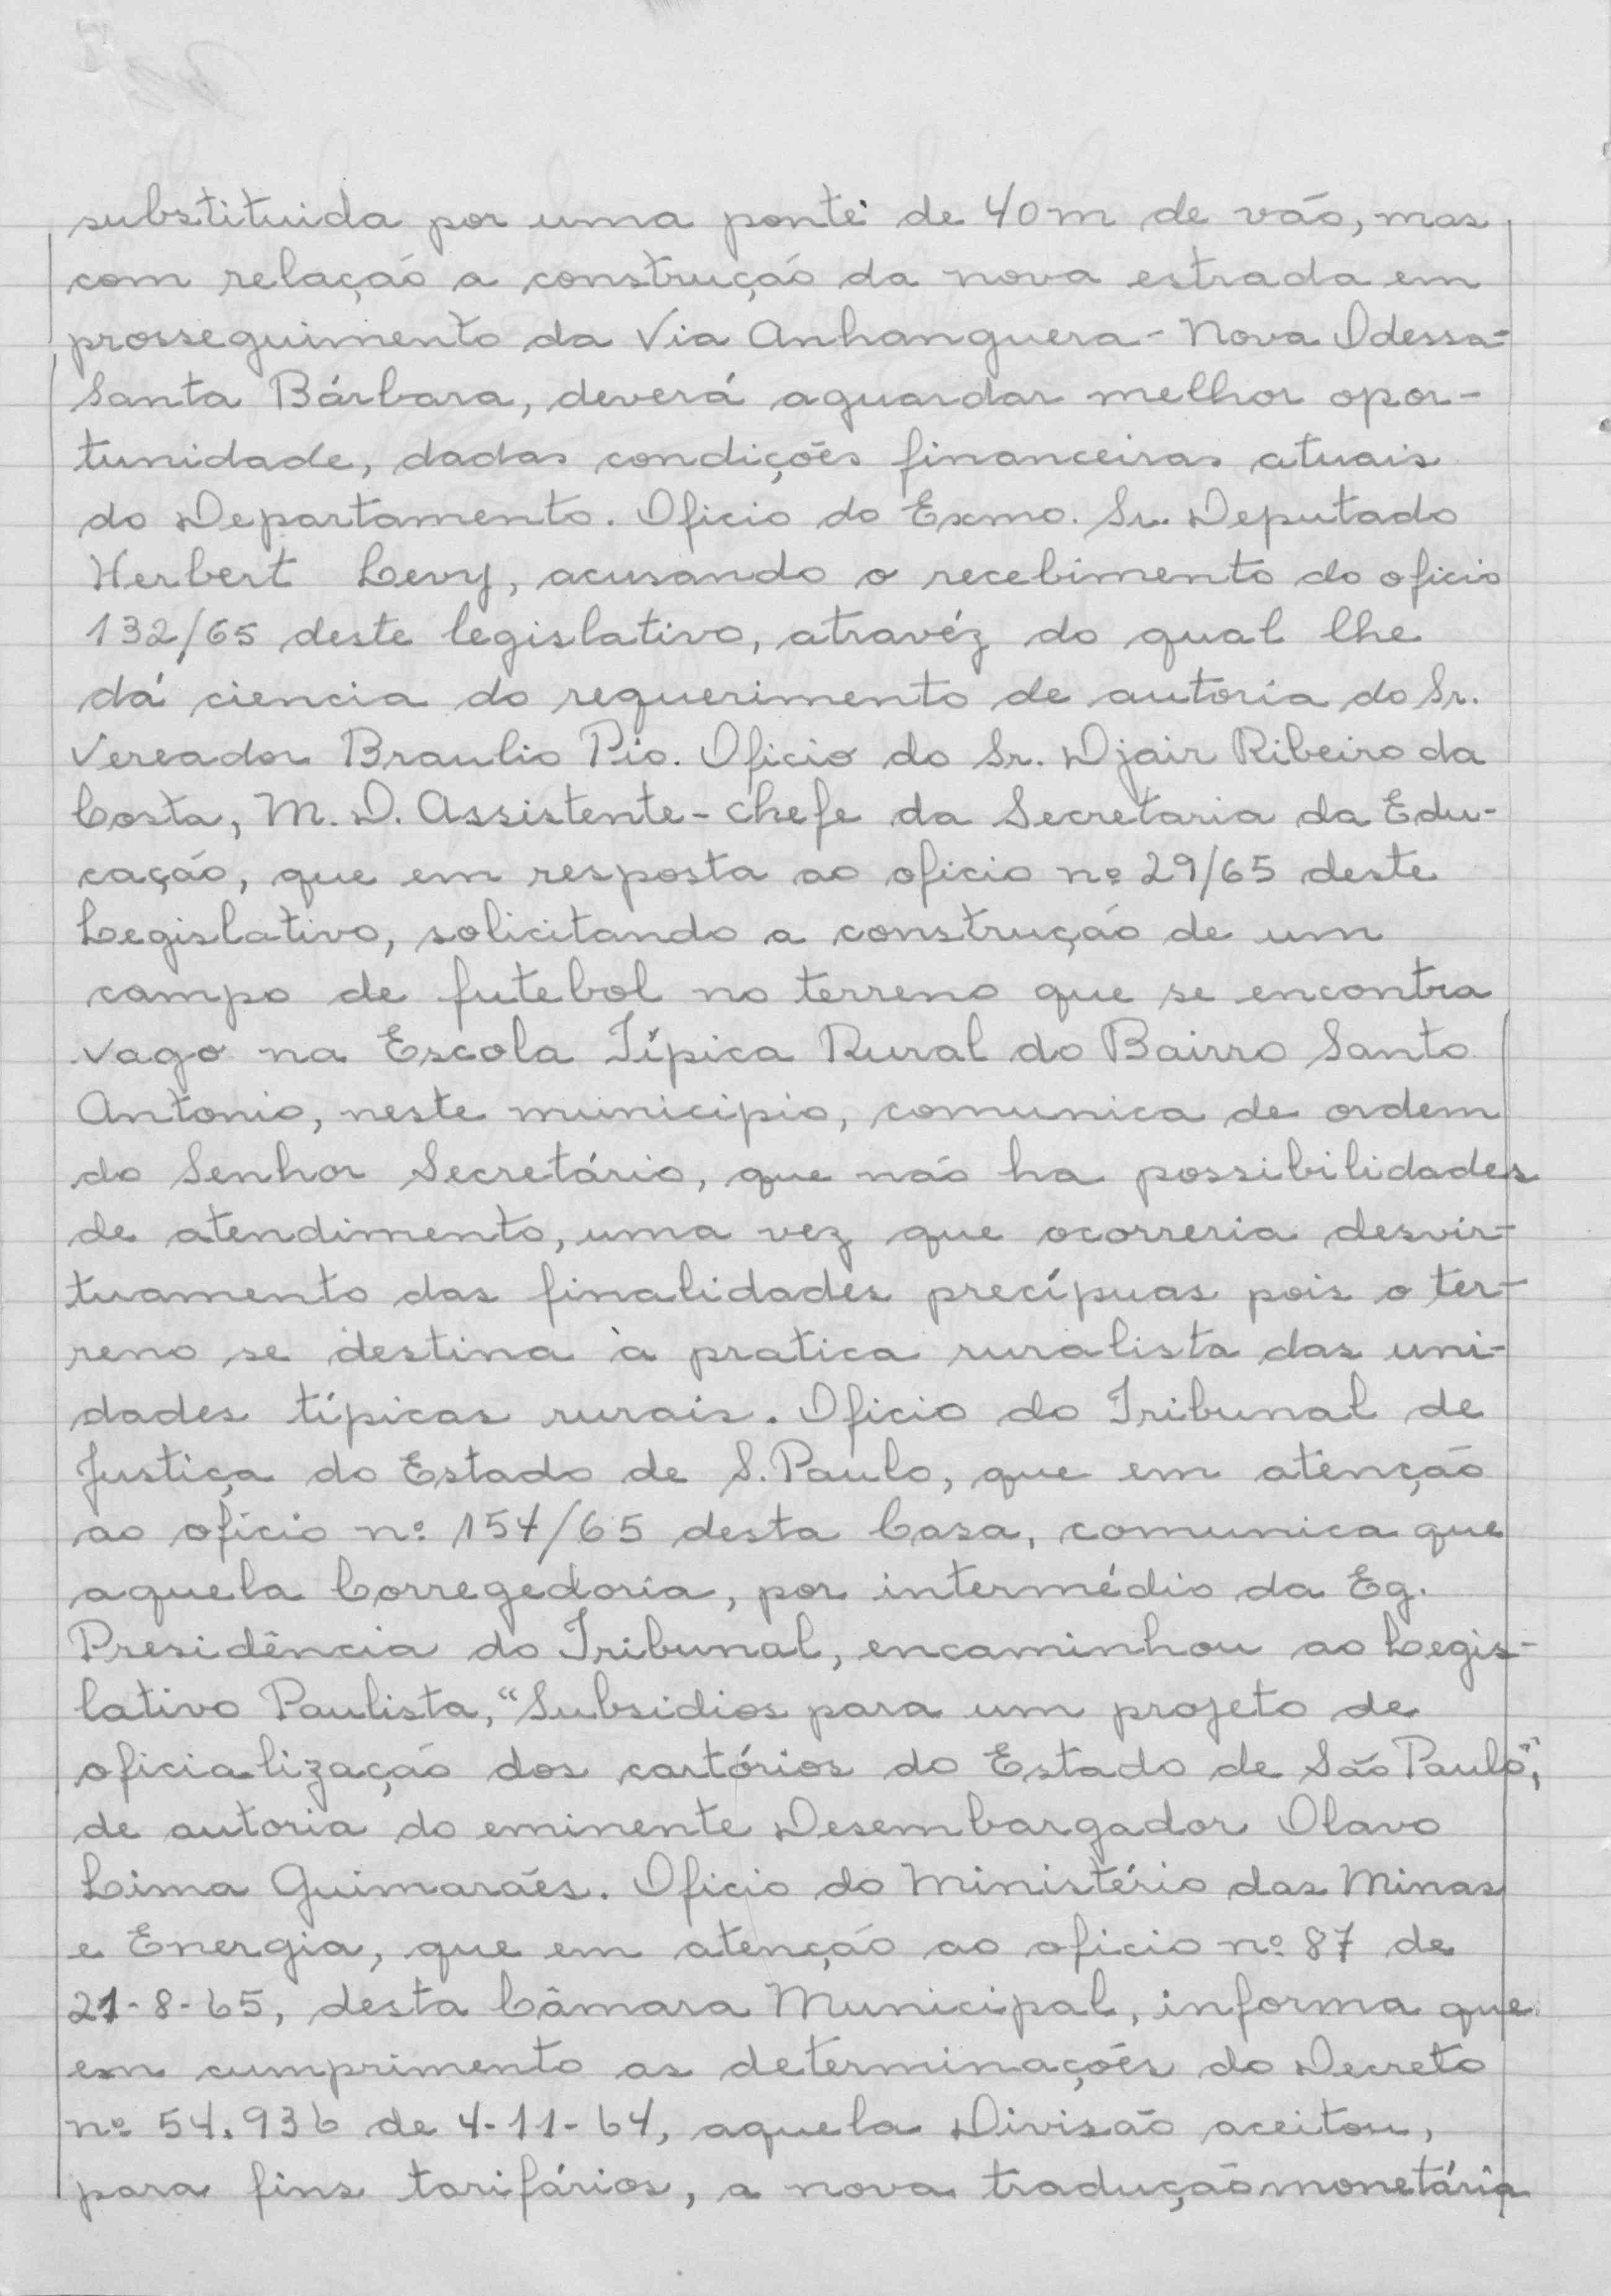 substituida por uma ponte de 40m de vão, mas
com relação a construção da nova estrada em
prosseguimento da Via Anhanguera - Nova Odessa-
Santa Bárbara, deverá aguardar melhor opor-
tunidade, dadas condições financeiras atuais
do Departamento. Oficio do Exmo. Sr. Deputado
Herbert Levy, acusando o recebimento do oficio
132/65 deste legislativo, atravéz do qual lhe
dá ciencia do requerimento de autoria do Sr.
Vereador Braulio Pio. Oficio do Sr. Djair Ribeiro da
Costa, M. D. Assistente-chefe da Secretaria da Edu-
cação, que em resposta ao oficio nº 29/65 deste
Legislativo, solicitando a construção de um
campo de futebol no terreno que se encontra
vago na Escola Típica Rural do Bairro Santo
Antonio, neste municipio, comunica de ordem
do Senhor Secretário, que não ha possibilidades
de atendimento, uma vez que ocorreria desvir-
tuamento das finalidades precípuas pois o ter-
reno se destina à pratica ruralista das uni-
dades típicas rurais. Oficio do Tribunal de
Justiça do Estado de S. Paulo, que em atenção
ao oficio nº 154/65 desta Casa, comunica que
aquela Corregedoria, por intermédio da Eg.
Presidência do Tribunal, encaminhou ao Legis-
lativo Paulista, "Subsidios para um projeto de
oficialização dos cartórios do Estado de São Paulo",
de autoria do eminente Desembargador Olavo
Lima Guimarães. Oficio do Ministério das Minas
e Energia, que em atenção ao oficio nº 87 de
21-8-65, desta Câmara Municipal, informa que
em cumprimento as determinações do Decreto
nº 54.936 de 4-11-64, aquela Divisão aceitou,
para fins tarifários, a nova tradução monetária